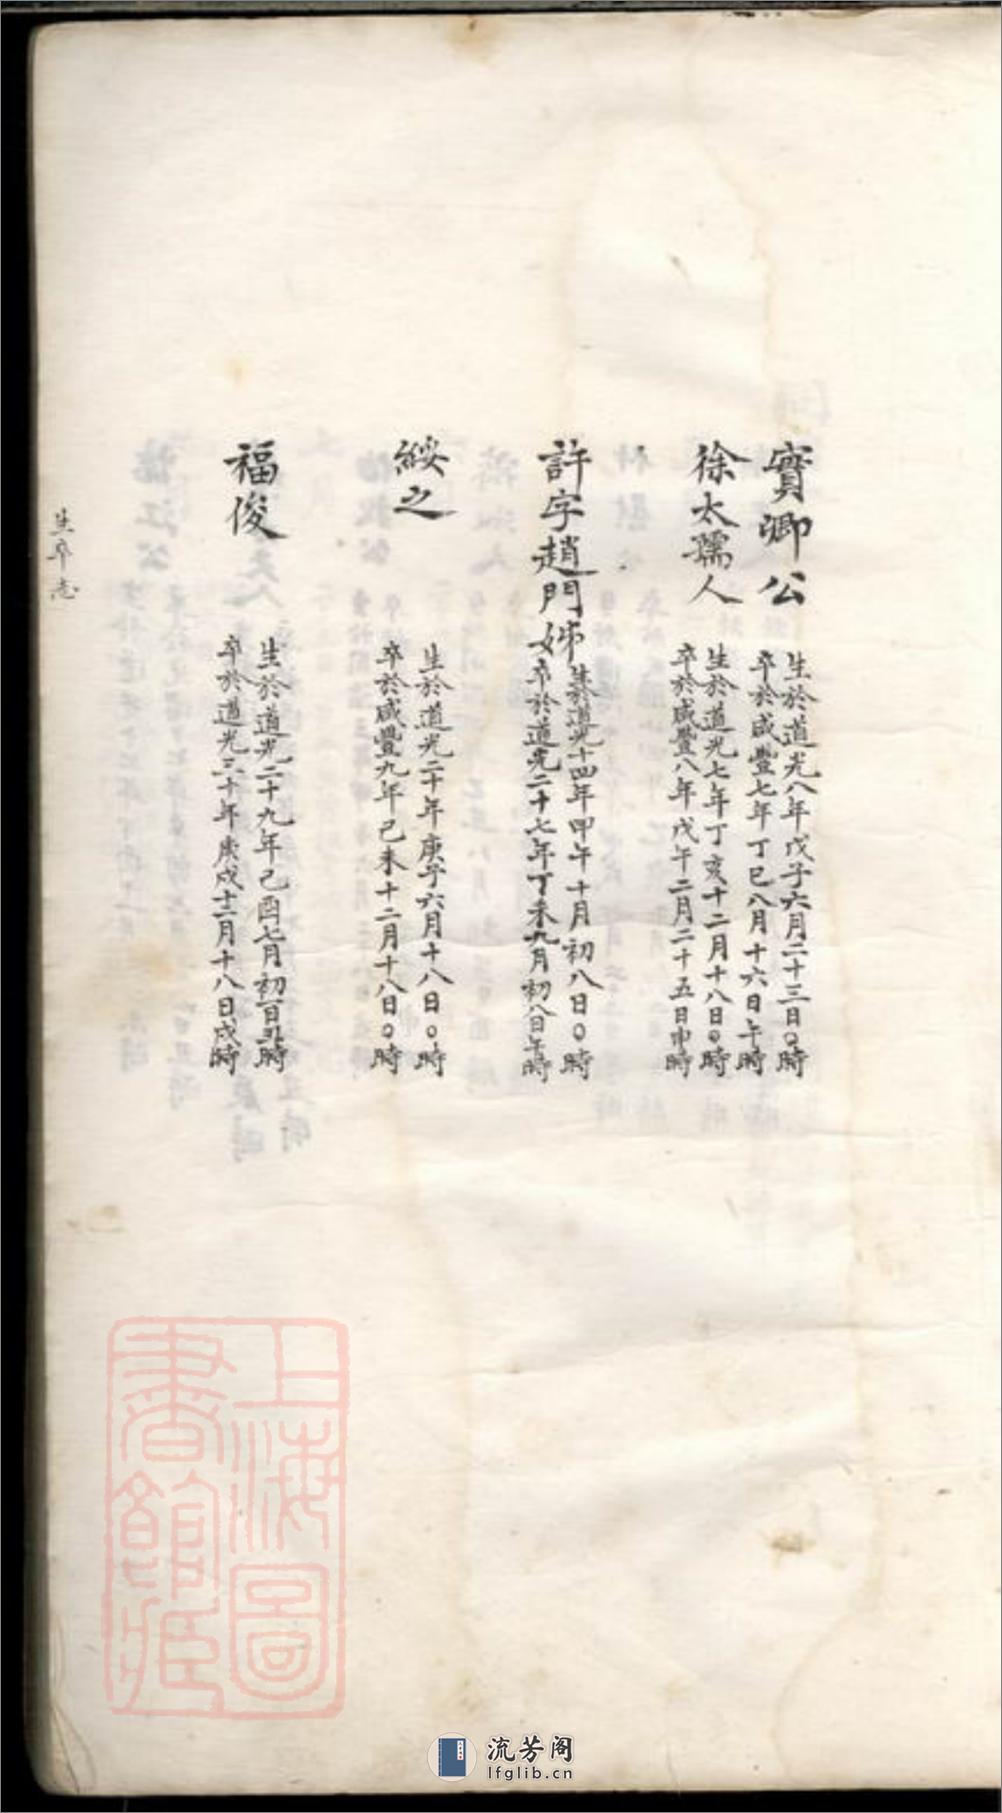 實卿公
生於道光八年戊子六月二十三日〇時
卒於咸豐七年丁巳八月十六日午時
徐太孺人
生於道光七年丁亥十二月十八日〇時
卒於咸豐八年戊午二月二十五日申時
許字趙門姊
生於道光十四年甲午十月初八日〇時
卒於道光二十七年丁未九月初八日午時
綏之
生於道光二十年庚子六月十八日〇時
卒於咸豐九年己未十二月十八日〇時
福俊
生於道光二十九年己酉七月初日時
卒於道光三十年庚戌十二月十八日戌時
生卒志
上海圖
書館藏
流芳阁
lfglib.cn